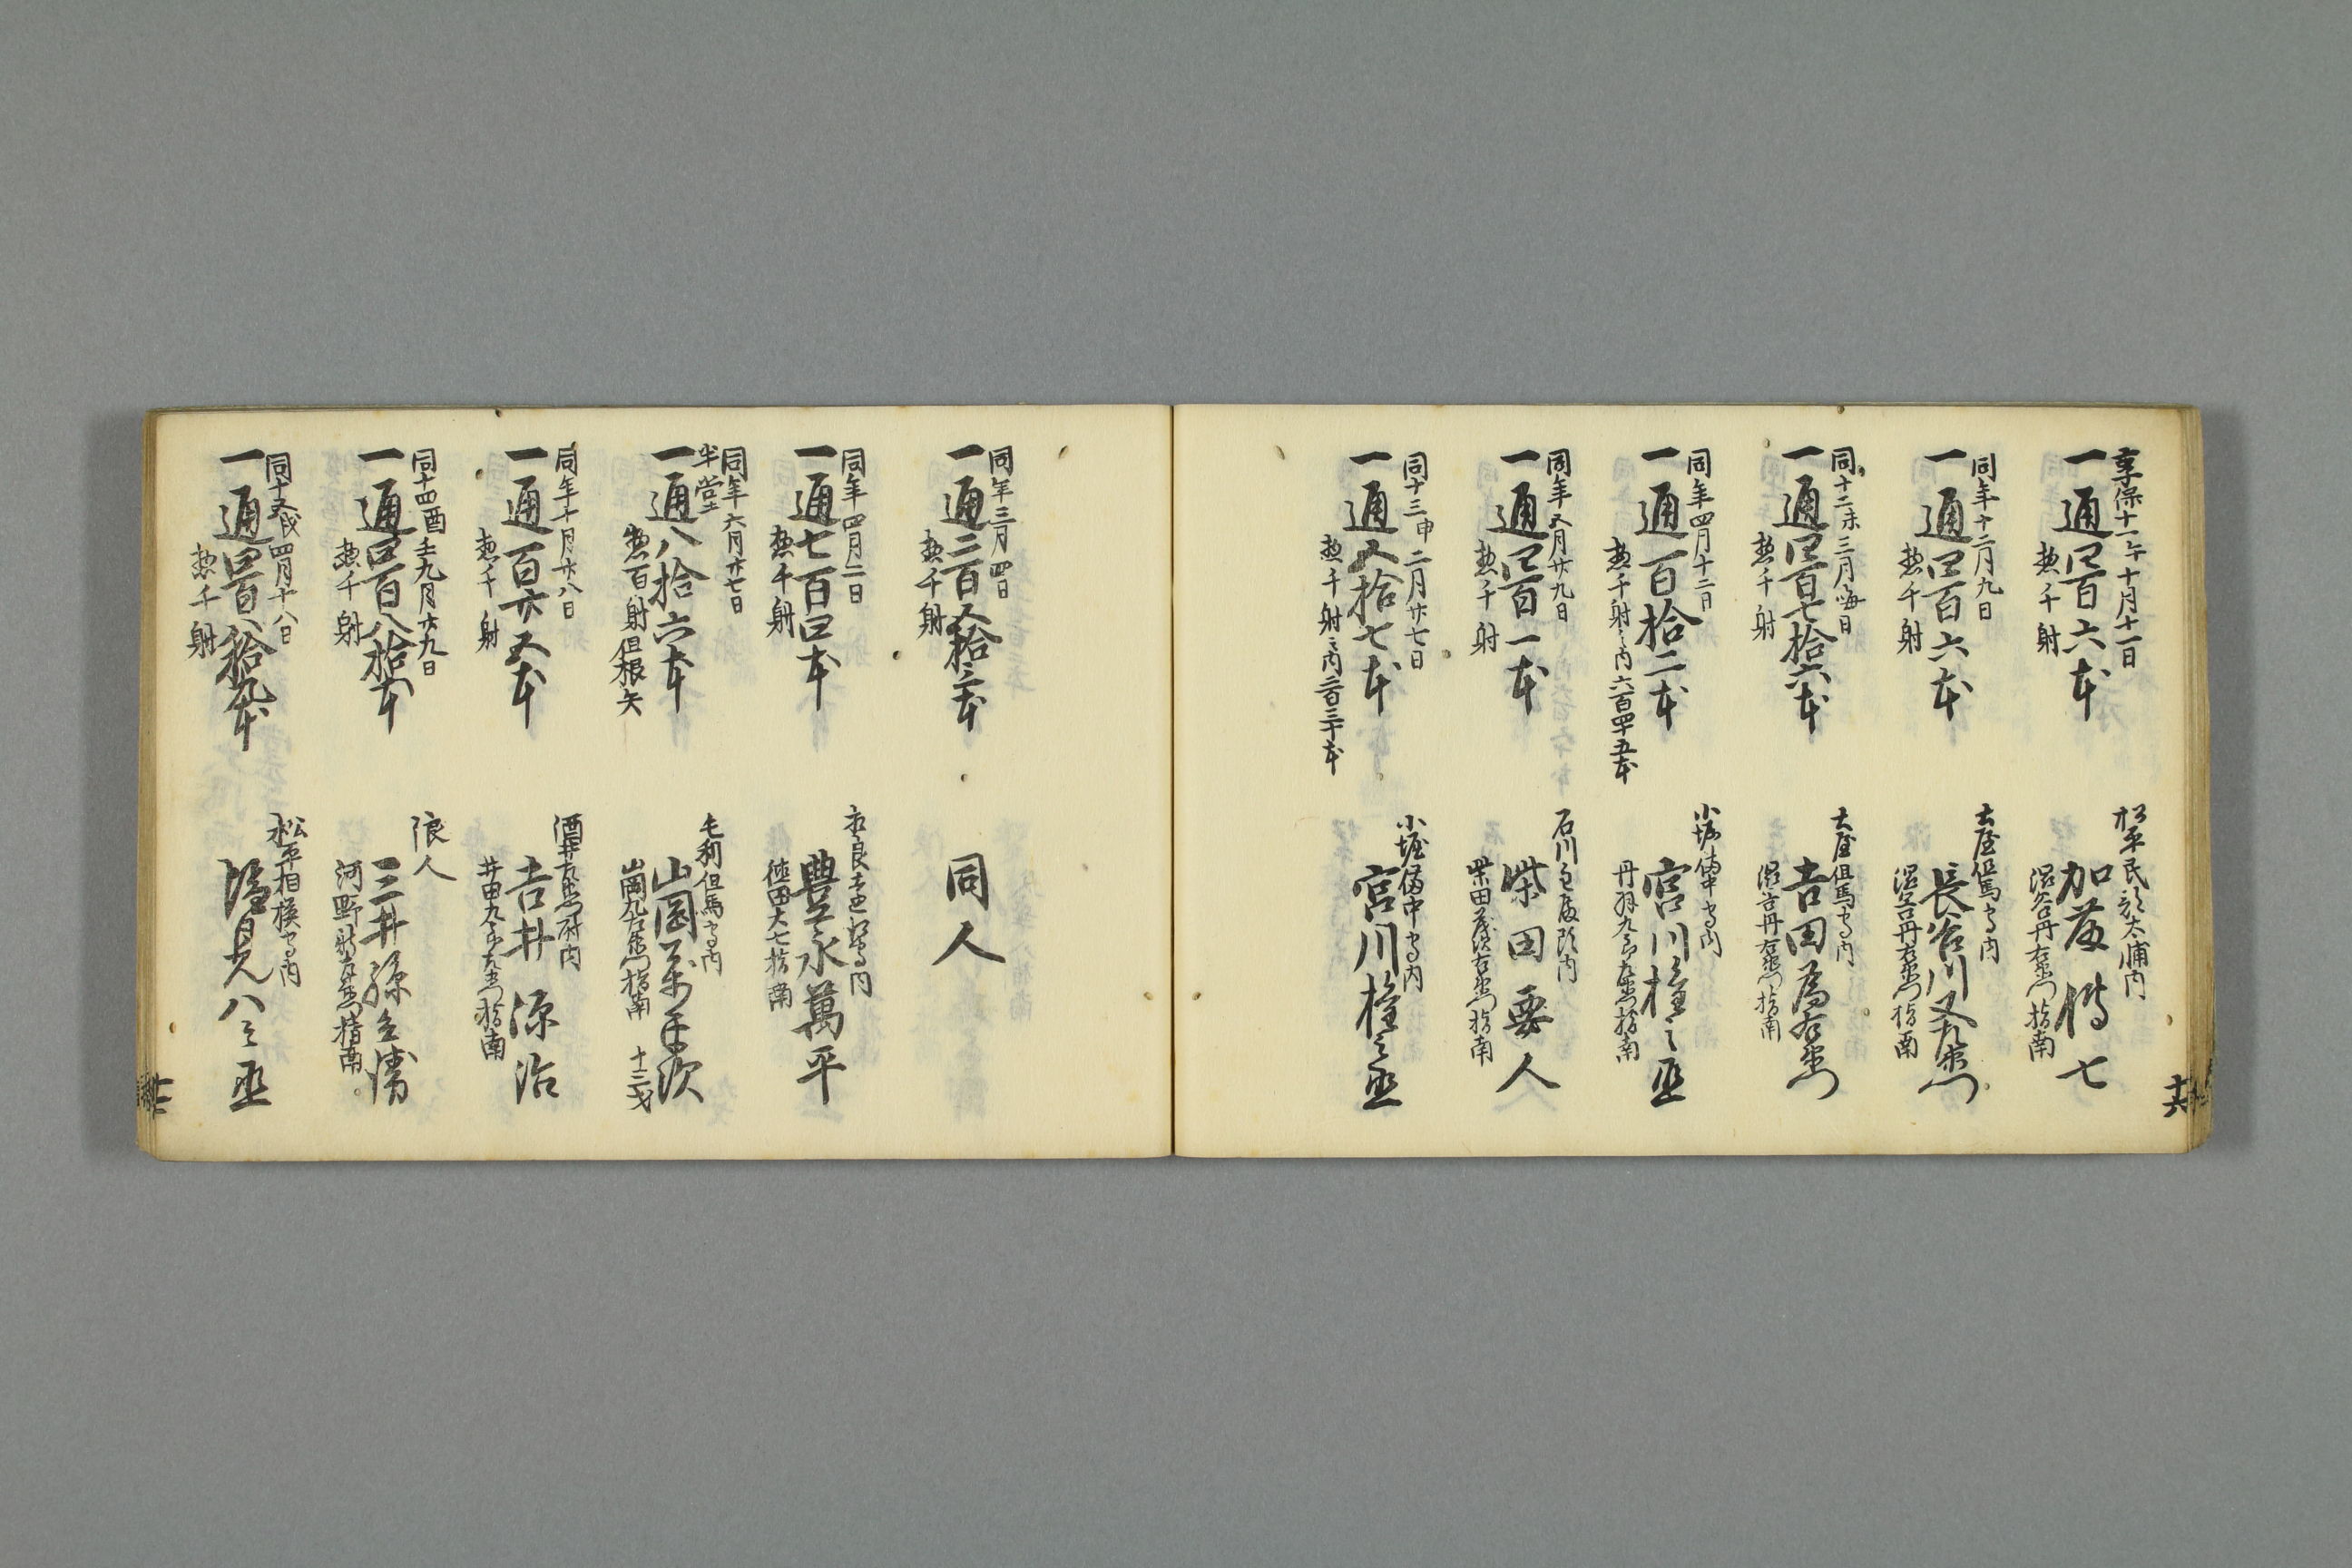 享保十一午十月十一日
一通四百六本
惣千射
松平民部太輔内
加藤傳七
渥谷丹右衛門指南
同年十二月九日
一通四百六本
惣千射
土屋但馬守内
長谷川又左衛門
渥谷丹右衛門指南
同十二未三月晦日
一通四百七拾六本
惣千射
土屋但馬守内
吉田為右衛門
丹右衛門指南
同年四月十二日
一通百拾二本
惣千射之内六百四十五本
小堀備中守内
宮川権之丞
丹羽九郎左衛門指南
同年五月廿九日
一通四百一本
惣千射
石川主殿頭内
柴田要人
柴田茂次右衛門指南
同十三申二月廿七日
一通五拾七本
惣千射之内二百三十本
小堀備中守内
宮川権之丞
十六
同年三月四日
一通二百五拾三本
惣千射
同人
同年四月二日
一通七百四本
惣千射
豊永萬平
徳田大七指南
同年六月廿七日
半堂
一通八拾六本
惣百射但根矢
毛利但馬守内
山岡万次
山岡九右衛門指南 十三才
同年十月廿八日
一通百廿五本
惣千射
吉井源治
井田九郎左衛門指南
同十四酉壬九月廿九日
一通四百八拾本
惣千射
浪人
三井孫兵衛
河野指南
同十五戌四月十八日
一通四百八拾九本
惣千射
松平相模守内
塩見八之丞